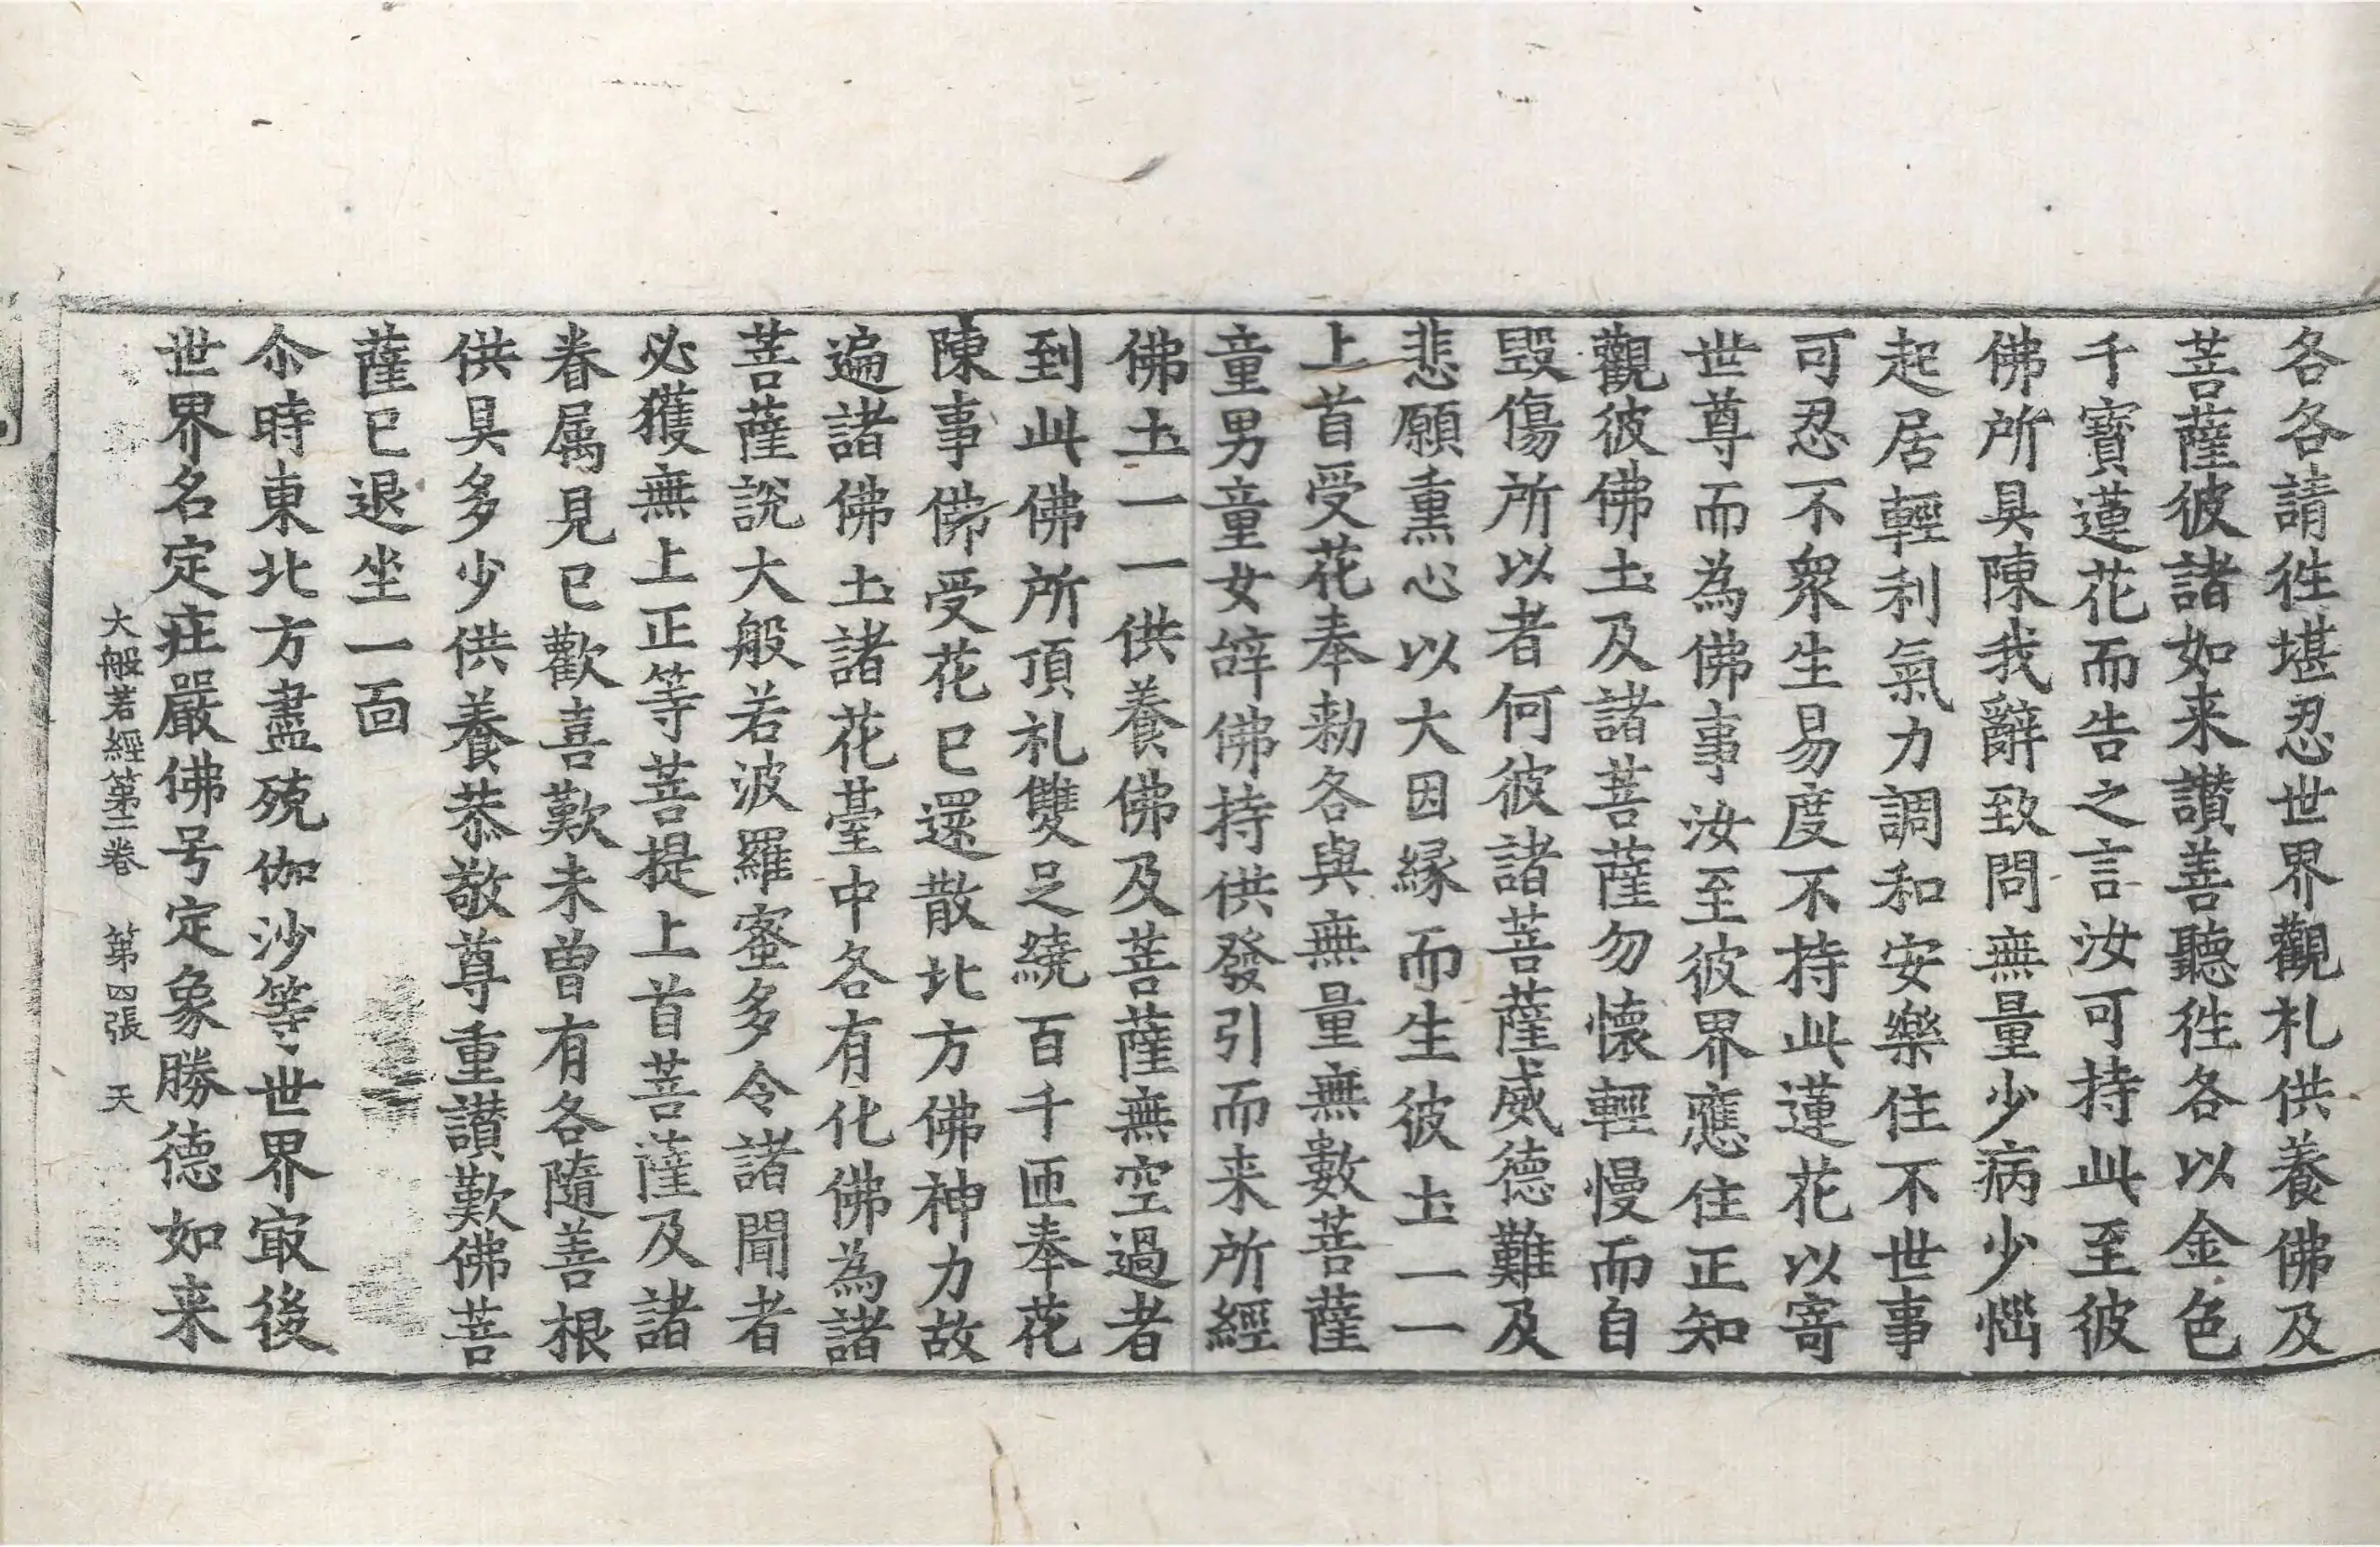 各各請徃堪忍世界觀礼供養佛及
菩薩彼諸如来讃善聽徃各以金色
千寶蓮花而告之言汝可持此至彼
佛所具陳我辭致問無量少病少惱
起居輕利氣力調和安樂住不世事
可忍不衆生易度不持此蓮花以寄
世尊而為佛事汝至彼界應住正知
觀彼佛土及諸菩薩勿懷輕慢而自
毀傷所以者何彼諸菩薩威德難及
悲願熏心以大因縁而生彼土一一
上首受花奉勅各與無量無數菩薩
童男童女辝佛持供發引而来所經
佛土一一供養佛及菩薩無空過者
到此佛所頂礼雙足繞百千匝奉花
陳事佛受花已還散北方佛神力故
遍諸佛土諸花臺中各有化佛為諸
菩薩說大般若波羅蜜多令諸聞者
必獲無上正等菩提上首菩薩及諸
眷属見已歡喜歎未曾有各隨善根
供具多少供養恭敬尊重讃歎佛菩
薩已退坐一面
尒時東北方盡殑伽沙等世界㝡後
世界名定莊嚴佛号定象勝德如来
大般若經第二卷　第四張　天